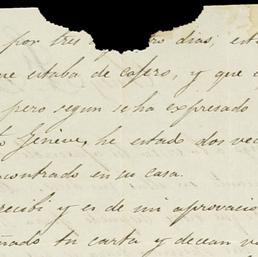 por tres dias, est
ue estaba de cafero, y que
pero segun se ha expresado
Geneve, he estado dos vec
contrado en su casa.
recibi y es de mi aprovacio
mado tu carta y decean v